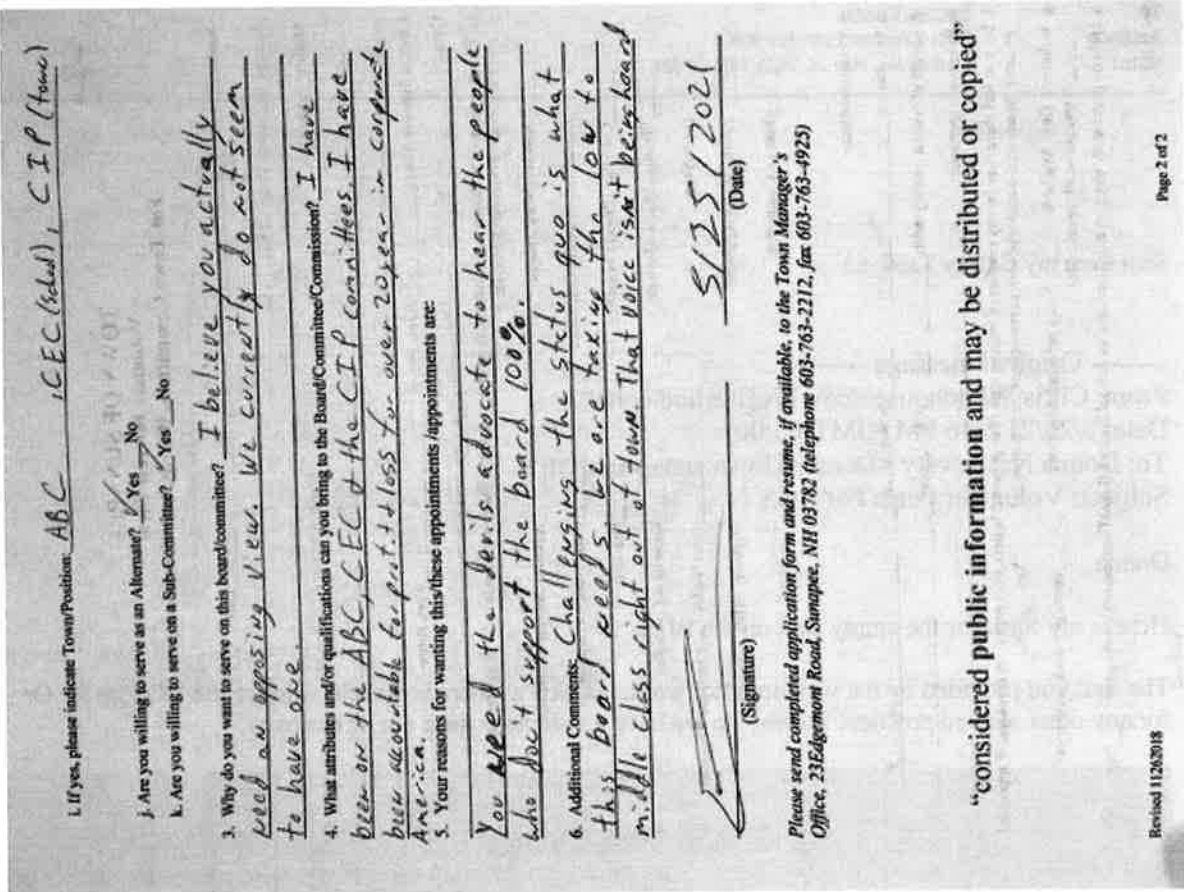 i. If yes, please indicate Town/Position: ABC, CEC (School), CIP (town)
j. Are you willing to serve as an Alternate? ✓ Yes No
k. Are you willing to serve on a Sub-Committee? ✓ Yes No
3. Why do you want to serve on this board/committee? I believe you actually
need an opposing view. We currently do not seem
to have one.
4. What attributes and/or qualifications can you bring to the Board/Committee/Commission? I have
been on the ABC, CEC & the CIP committees. I have
been accountable for profit & loss for over 20 year in corporate
America.
5. Your reasons for wanting this/these appointments /appointments are:
You need the devils advocate to hear the people
who don't support the board 100%.
6. Additional Comments: Challenging the status quo is what
this board needs. We are taxing the low to
middle class right out of town. That voice isn't being heard
5/25/2021
(Signature) (Date)
Please send completed application form and resume, if available, to the Town Manager's
Office, 23Edgemont Road, Sunapee, NH 03782 (telephone 603-763-2212, fax 603-763-4925)
"considered public information and may be distributed or copied"
Revised 11262018 Page 2 of 2